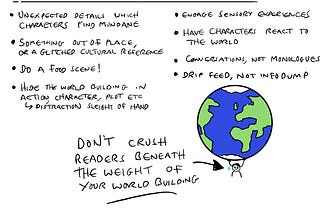 • UNEXPECTED DETAILS WHICH
CHARACTERS FIND MUNDANE
• SOMETHING OUT OF PLACE,
OR A GLITCHED CULTURAL REFERENCE
• DO A FOOD SCENE!
• HIDE THE WORLD BUILDING IN
ACTION, CHARACTER, PLOT ETC
↳ DISTRACTION SLEIGHT OF HAND
• ENGAGE SENSORY EXPERIENCES
• HAVE CHARACTERS REACT TO
THE WORLD
• CONVERSATIONS, NOT MONOLOGUES
• DRIP FEED, NOT INFODUMP
DON'T CRUSH
READERS BENEATH
THE WEIGHT OF
YOUR WORLD BUILDING